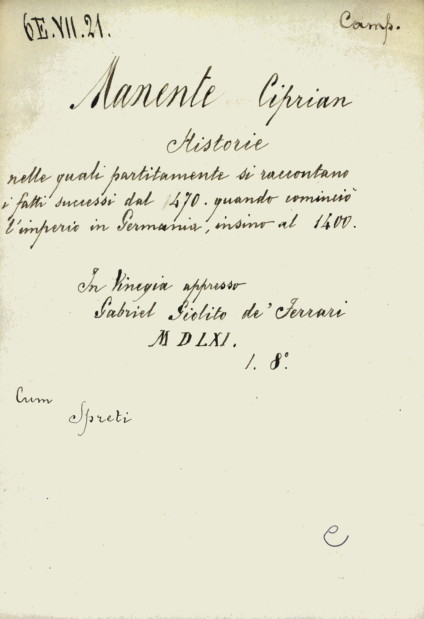 6E.VII.21.
Camp.
Manente Ciprian
Historie
nelle quali partitamente si raccontano
i fatti successi dal 1470. quando cominciò
l'imperio in Germania, insino al 1400.
In Vinegia appresso
Gabriel Giolito de' Ferrari
MDLXI.
1. 8º
Cum
Spreti
C